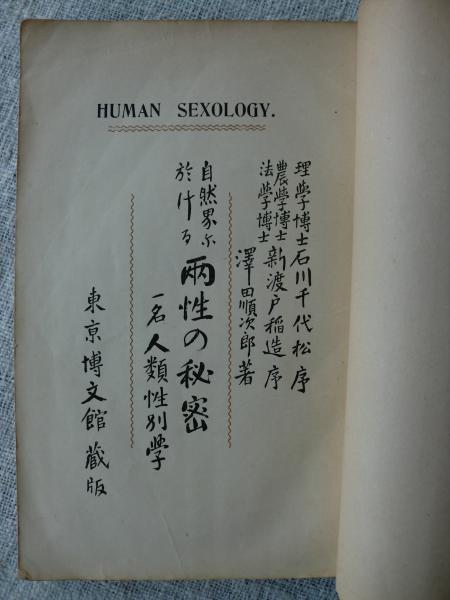 HUMAN SEXOLOGY.
理學博士石川千代松序
農學博士
法學博士
新渡戸稲造序
澤田順次郎著
自然界尓
於ける
兩性の秘密
一名人類性別學
東京博文館蔵版